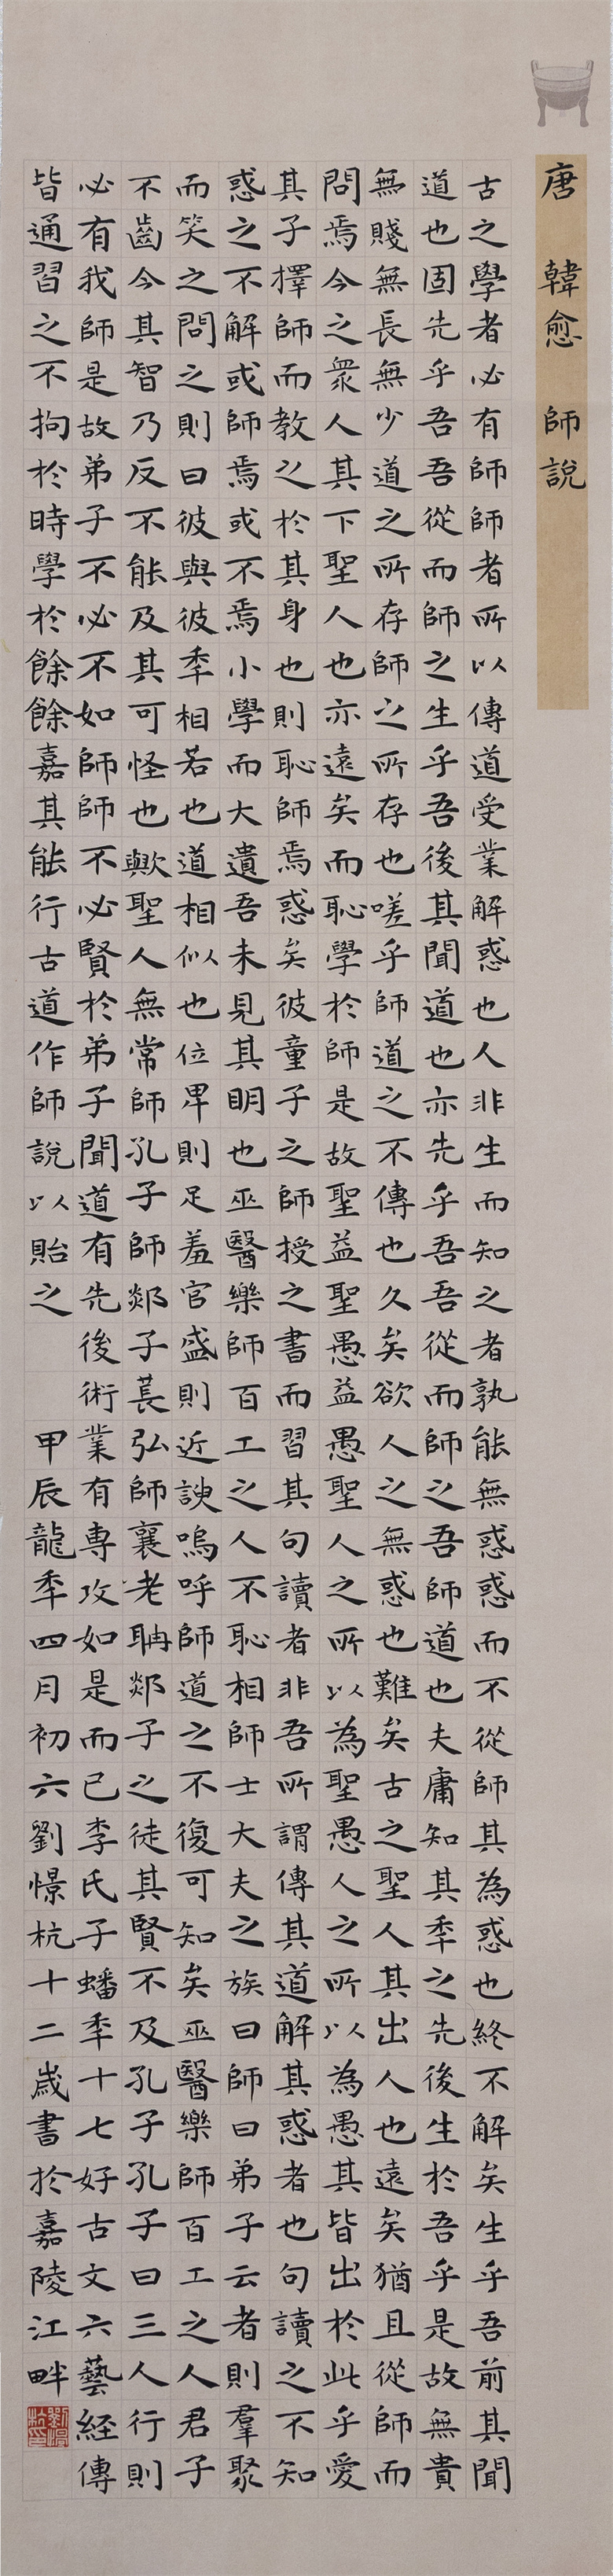 唐 韓愈 師說
古之學者必有師師者所以傳道受業解惑也人非生而知之者孰能無惑惑而不從師其為惑也終不解矣生乎吾前其聞
道也固先乎吾吾從而師之生乎吾後其聞道也亦先乎吾吾從而師之吾師道也夫庸知其秊之先後生於吾乎是故無貴
無賤無長無少道之所存師之所存也嗟乎師道之不傳也久矣欲人之無惑也難矣古之聖人其出人也遠矣猶且從師而
問焉今之眾人其下聖人也亦遠矣而恥學於師是故聖益聖愚益愚聖人之所以為聖愚人之所以為愚其皆出於此乎愛
其子擇師而教之於其身也則恥師焉惑矣彼童子之師授之書而習其句讀者非吾所謂傳其道解其惑者也句讀之不知
惑之不解或師焉或不焉小學而大遺吾未見其明也巫醫樂師百工之人不恥相師士大夫之族曰師曰弟子云者則羣聚
而笑之問之則曰彼與彼秊相若也道相似也位卑則足羞官盛則近諛嗚呼師道之不復可知矣巫醫樂師百工之人君子
不齒今其智乃反不能及其可怪也歟聖人無常師孔子師郯子萇弘師襄老聃郯子之徒其賢不及孔子孔子曰三人行則
必有我師是故弟子不必不如師師不必賢於弟子聞道有先後術業有專攻如是而已李氏子蟠秊十七好古文六藝経傳
皆通習之不拘於時學於餘餘嘉其能行古道作師說以貽之 甲辰龍秊四月初六劉憬杭十二歲書於嘉陵江畔
劉憬杭印